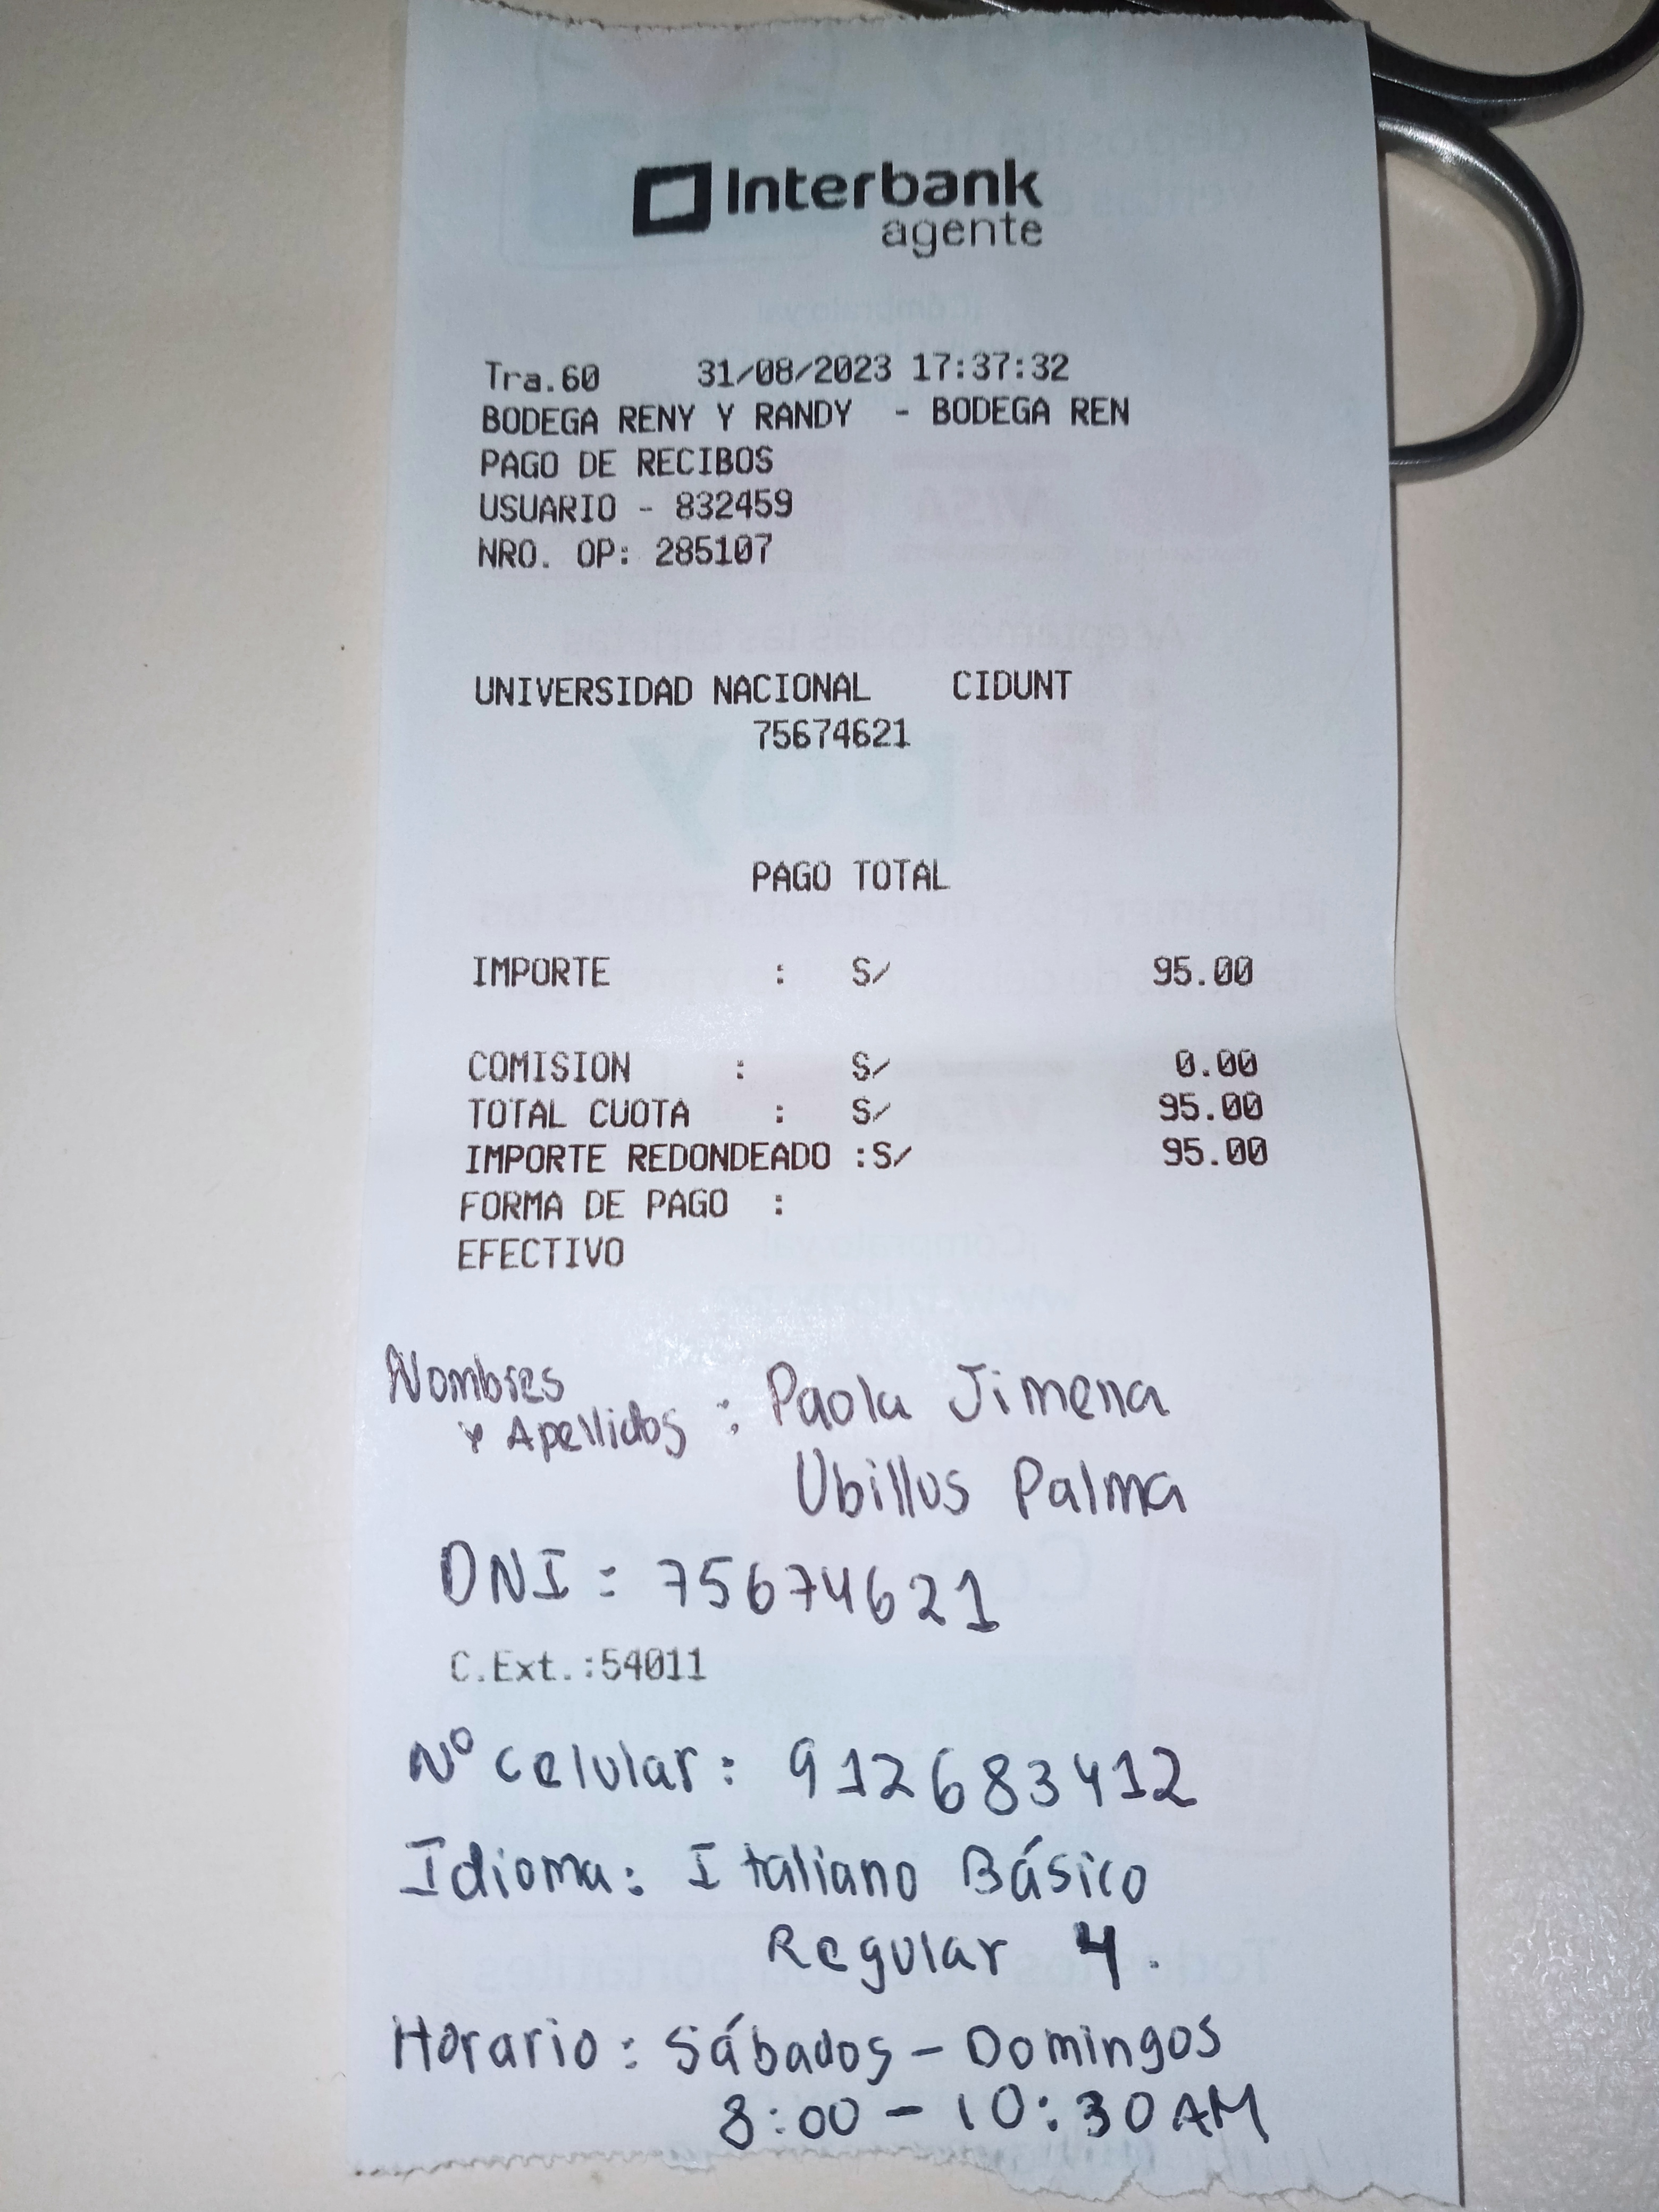 Interbank
agente
Tra.60 31/08/2023 17:37:32
BODEGA RENY Y RANDY - BODEGA REN
PAGO DE RECIBOS
USUARIO - 832459
NRO. OP: 285107
UNIVERSIDAD NACIONAL CIDUNT
75674621
PAGO TOTAL
IMPORTE : S/ 95.00
COMISION : S/ 0.00
TOTAL CUOTA : S/ 95.00
IMPORTE REDONDEADO :S/ 95.00
FORMA DE PAGO :
EFECTIVO
Nombres
y Apellidos : Paola Jimena
Ubillus Palma
DNI : 75674621
C.Ext.:54011
N° celular: 912683412
Idioma: Italiano Básico
Regular 4.
Horario: Sábados - Domingos
8:00 - 10:30 AM